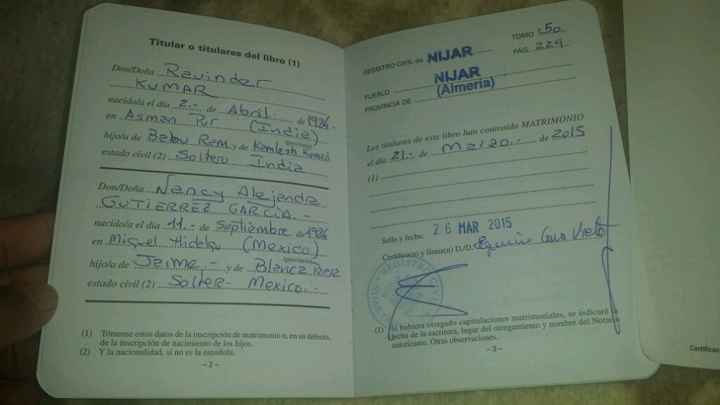 Titular o titulares del libro (1)
Don/Doña Ravinder
KUMAR
nacido/a el día 2.- de Abril de 1986.-
en Asman Pur (India)
hijo/a de Babu Ram y de Kamlesh
estado civil (2) Soltero India
Don/Doña Nancy Alejandra
GUTIERREZ GARCIA.-
nacido/a el día 11.- de Septiembre de 1986
en Miguel Hidalgo (Mexico)
hijo/a de Jaime.- y de Blanca
estado civil (2) Soltera- Mexico.-
(1) Tómense estos datos de la inscripción de matrimonio o, en su defecto,
de la inscripción de nacimiento de los hijos.
(2) Y la nacionalidad, si no es la española.
- 2 -
TOMO 50
PÁG. 229
REGISTRO CIVIL de NIJAR
PUEBLO NIJAR
PROVINCIA DE (Almería)
Los titulares de este libro han contraído MATRIMONIO
el día 21.- de marzo.- de 2015
(1)
Sello y fecha: 26 MAR 2015
(1) Si hubiera otorgado capitulaciones matrimoniales, se indicará la
fecha de la escritura, lugar del otorgamiento y nombre del Notario
autorizante. Otras observaciones.
- 3 -